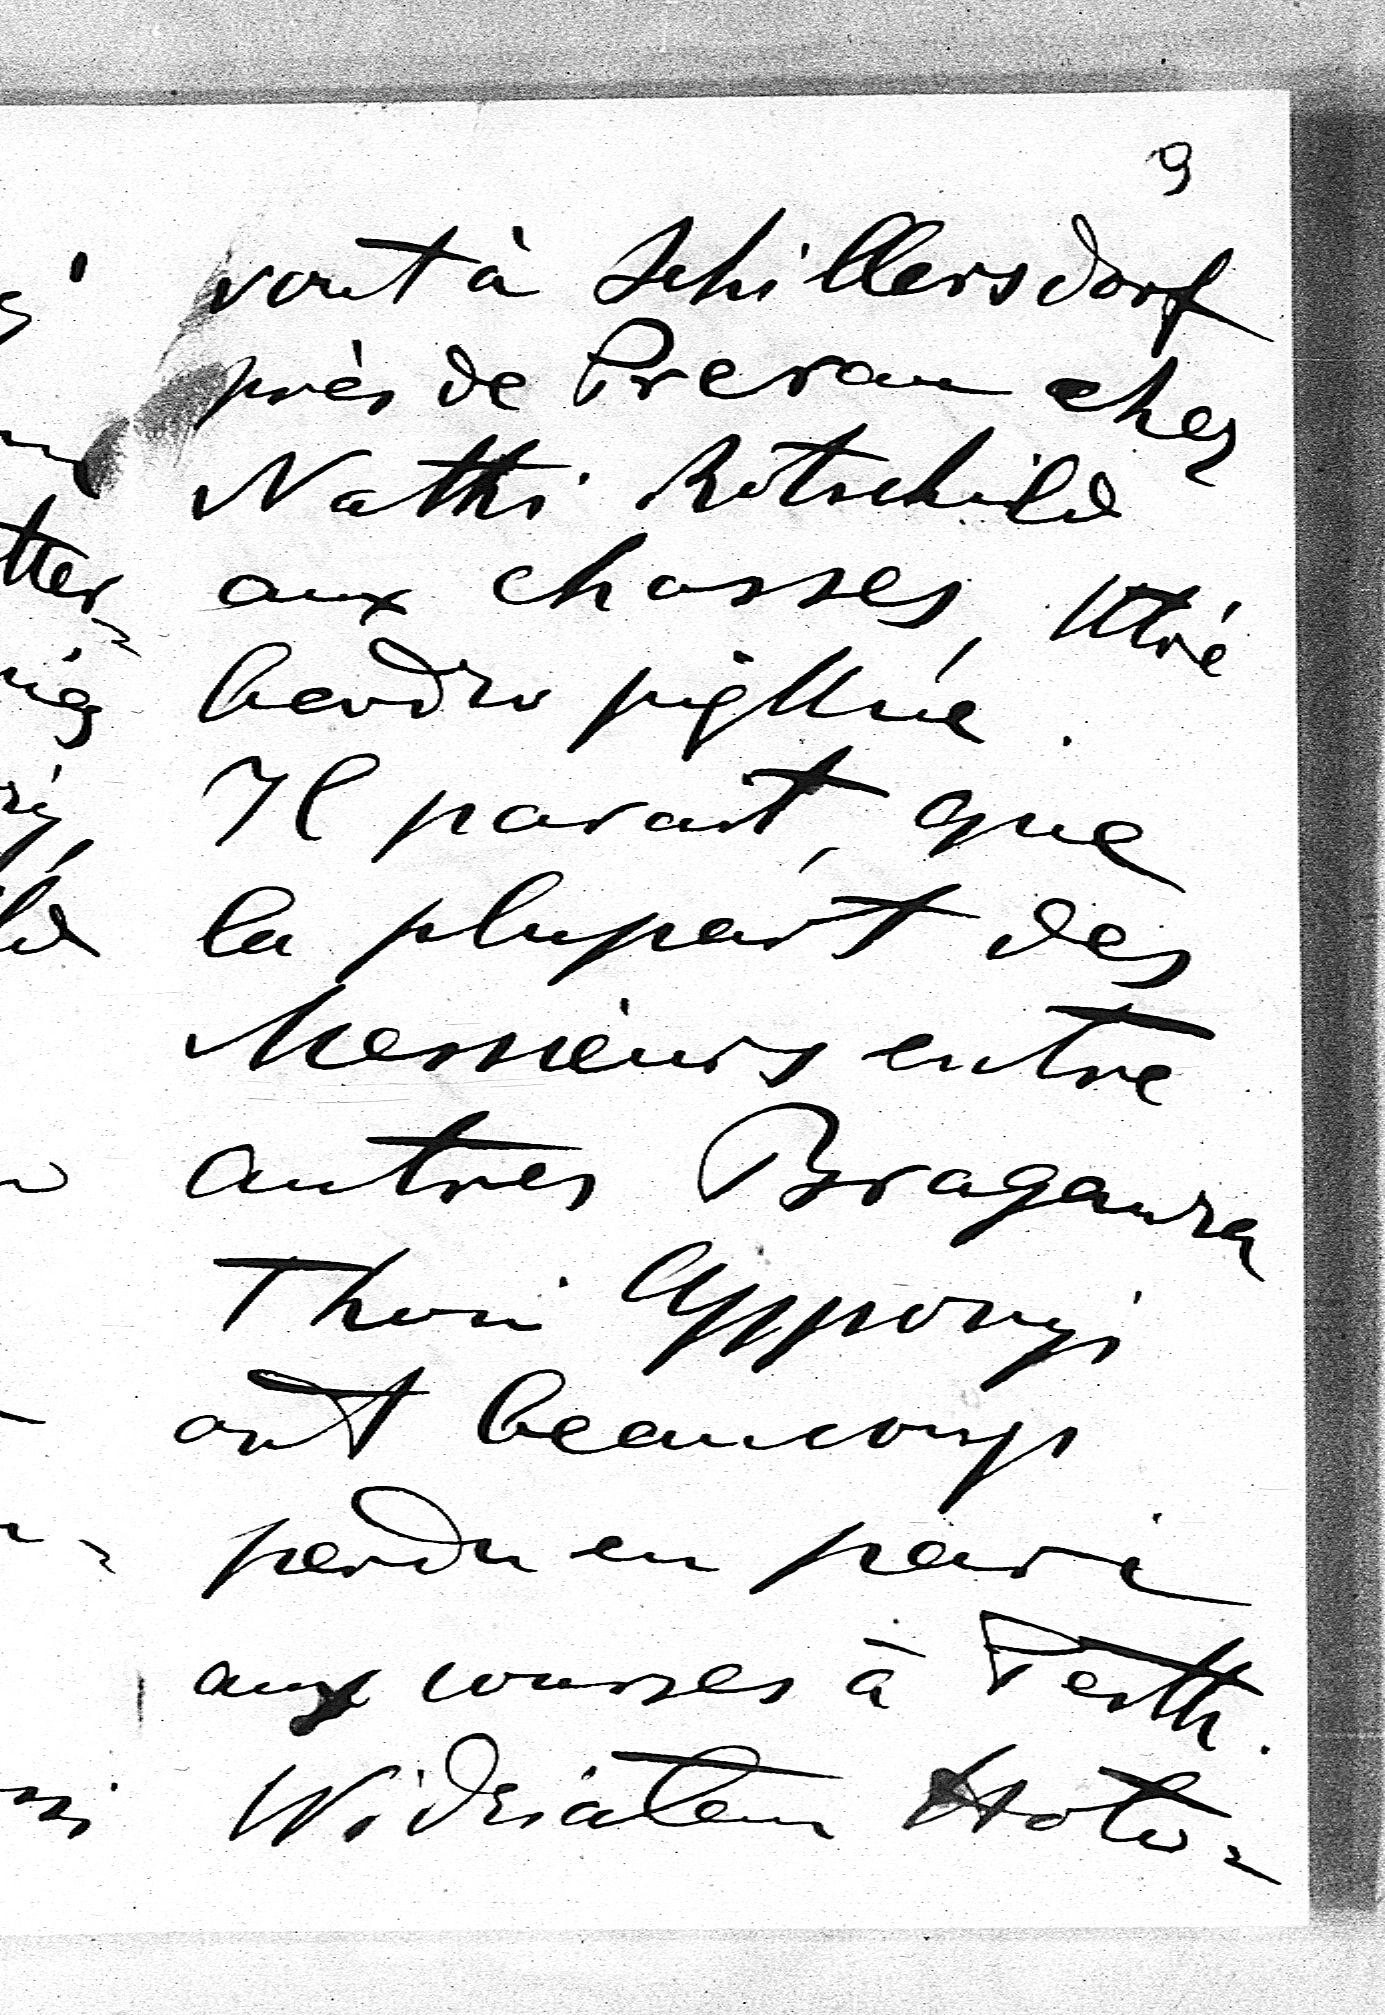 9
vont à Schillersdorf
près de Prerau chez
Nathi Rotschild
aux chasses, któré
bardzo piękné.
Il parait, que
la plupart des
Messieurs entre
autres Braganza
Thoni Apponyi
ont beaucoup
perdu en pari
aux courses à Pesth.
Widziałem Hoto-